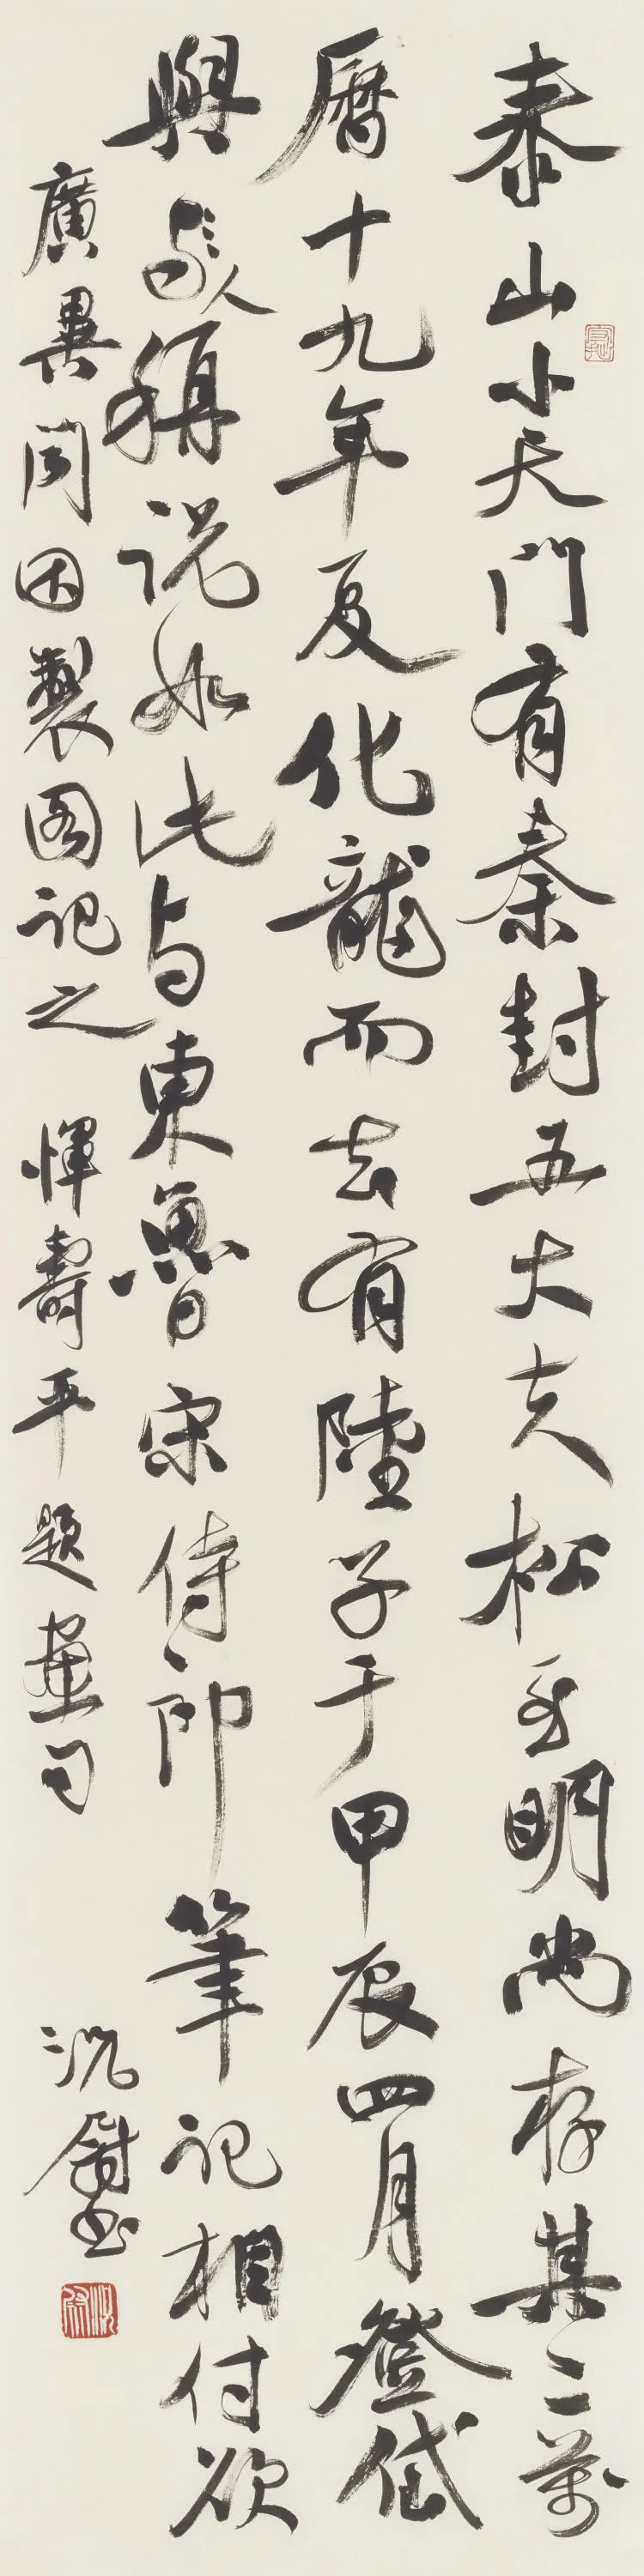 泰山小天門有秦封五大夫松至明尚存其二萬
曆十九年夏化龍而去有陸子于甲辰四月登岱
與余稱說如此与東魯宋侍郎筆記相付欲
廣異聞因製圖記之 惲壽平題畫句
沈尉書